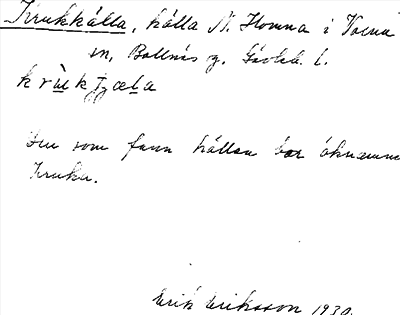 Krukkälla, källa N. Homna i Voxna
sn, Bollnäs g. Gävleb. l.
krùkᶎæla
Den som fann källan bar öknamnet
Kruku.
Erik Eriksson 1930.